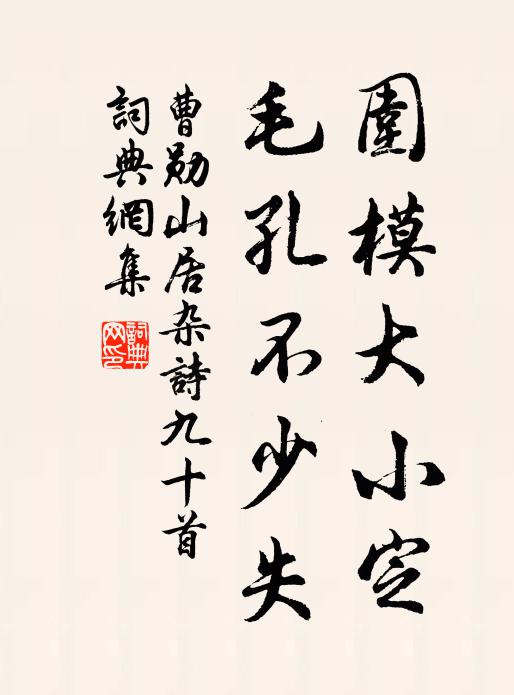 圍模大小定
毛孔不少失
曹勛山居杂詩九十首
詞典網集
詞典網印